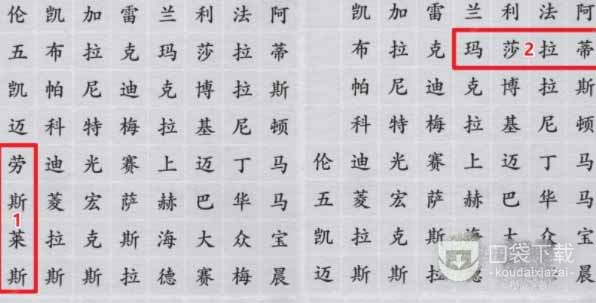 伦凯加雷兰利法阿
五布拉克玛莎拉蒂
凯帕尼迪克博拉斯
迈科特梅拉基尼顿
劳迪光赛上迈丁马
斯菱宏萨赫巴华马
莱拉克斯海大众宝
斯斯斯拉德赛梅晨
1
凯加雷兰利法阿
布拉克玛莎拉蒂
2
帕尼迪克博拉斯
科特梅拉基尼顿
伦迪光赛上迈丁马
五菱宏萨赫巴华马
凯拉克斯海大众宝
迈斯斯拉德赛梅晨
口袋下载
koudaixiazai.